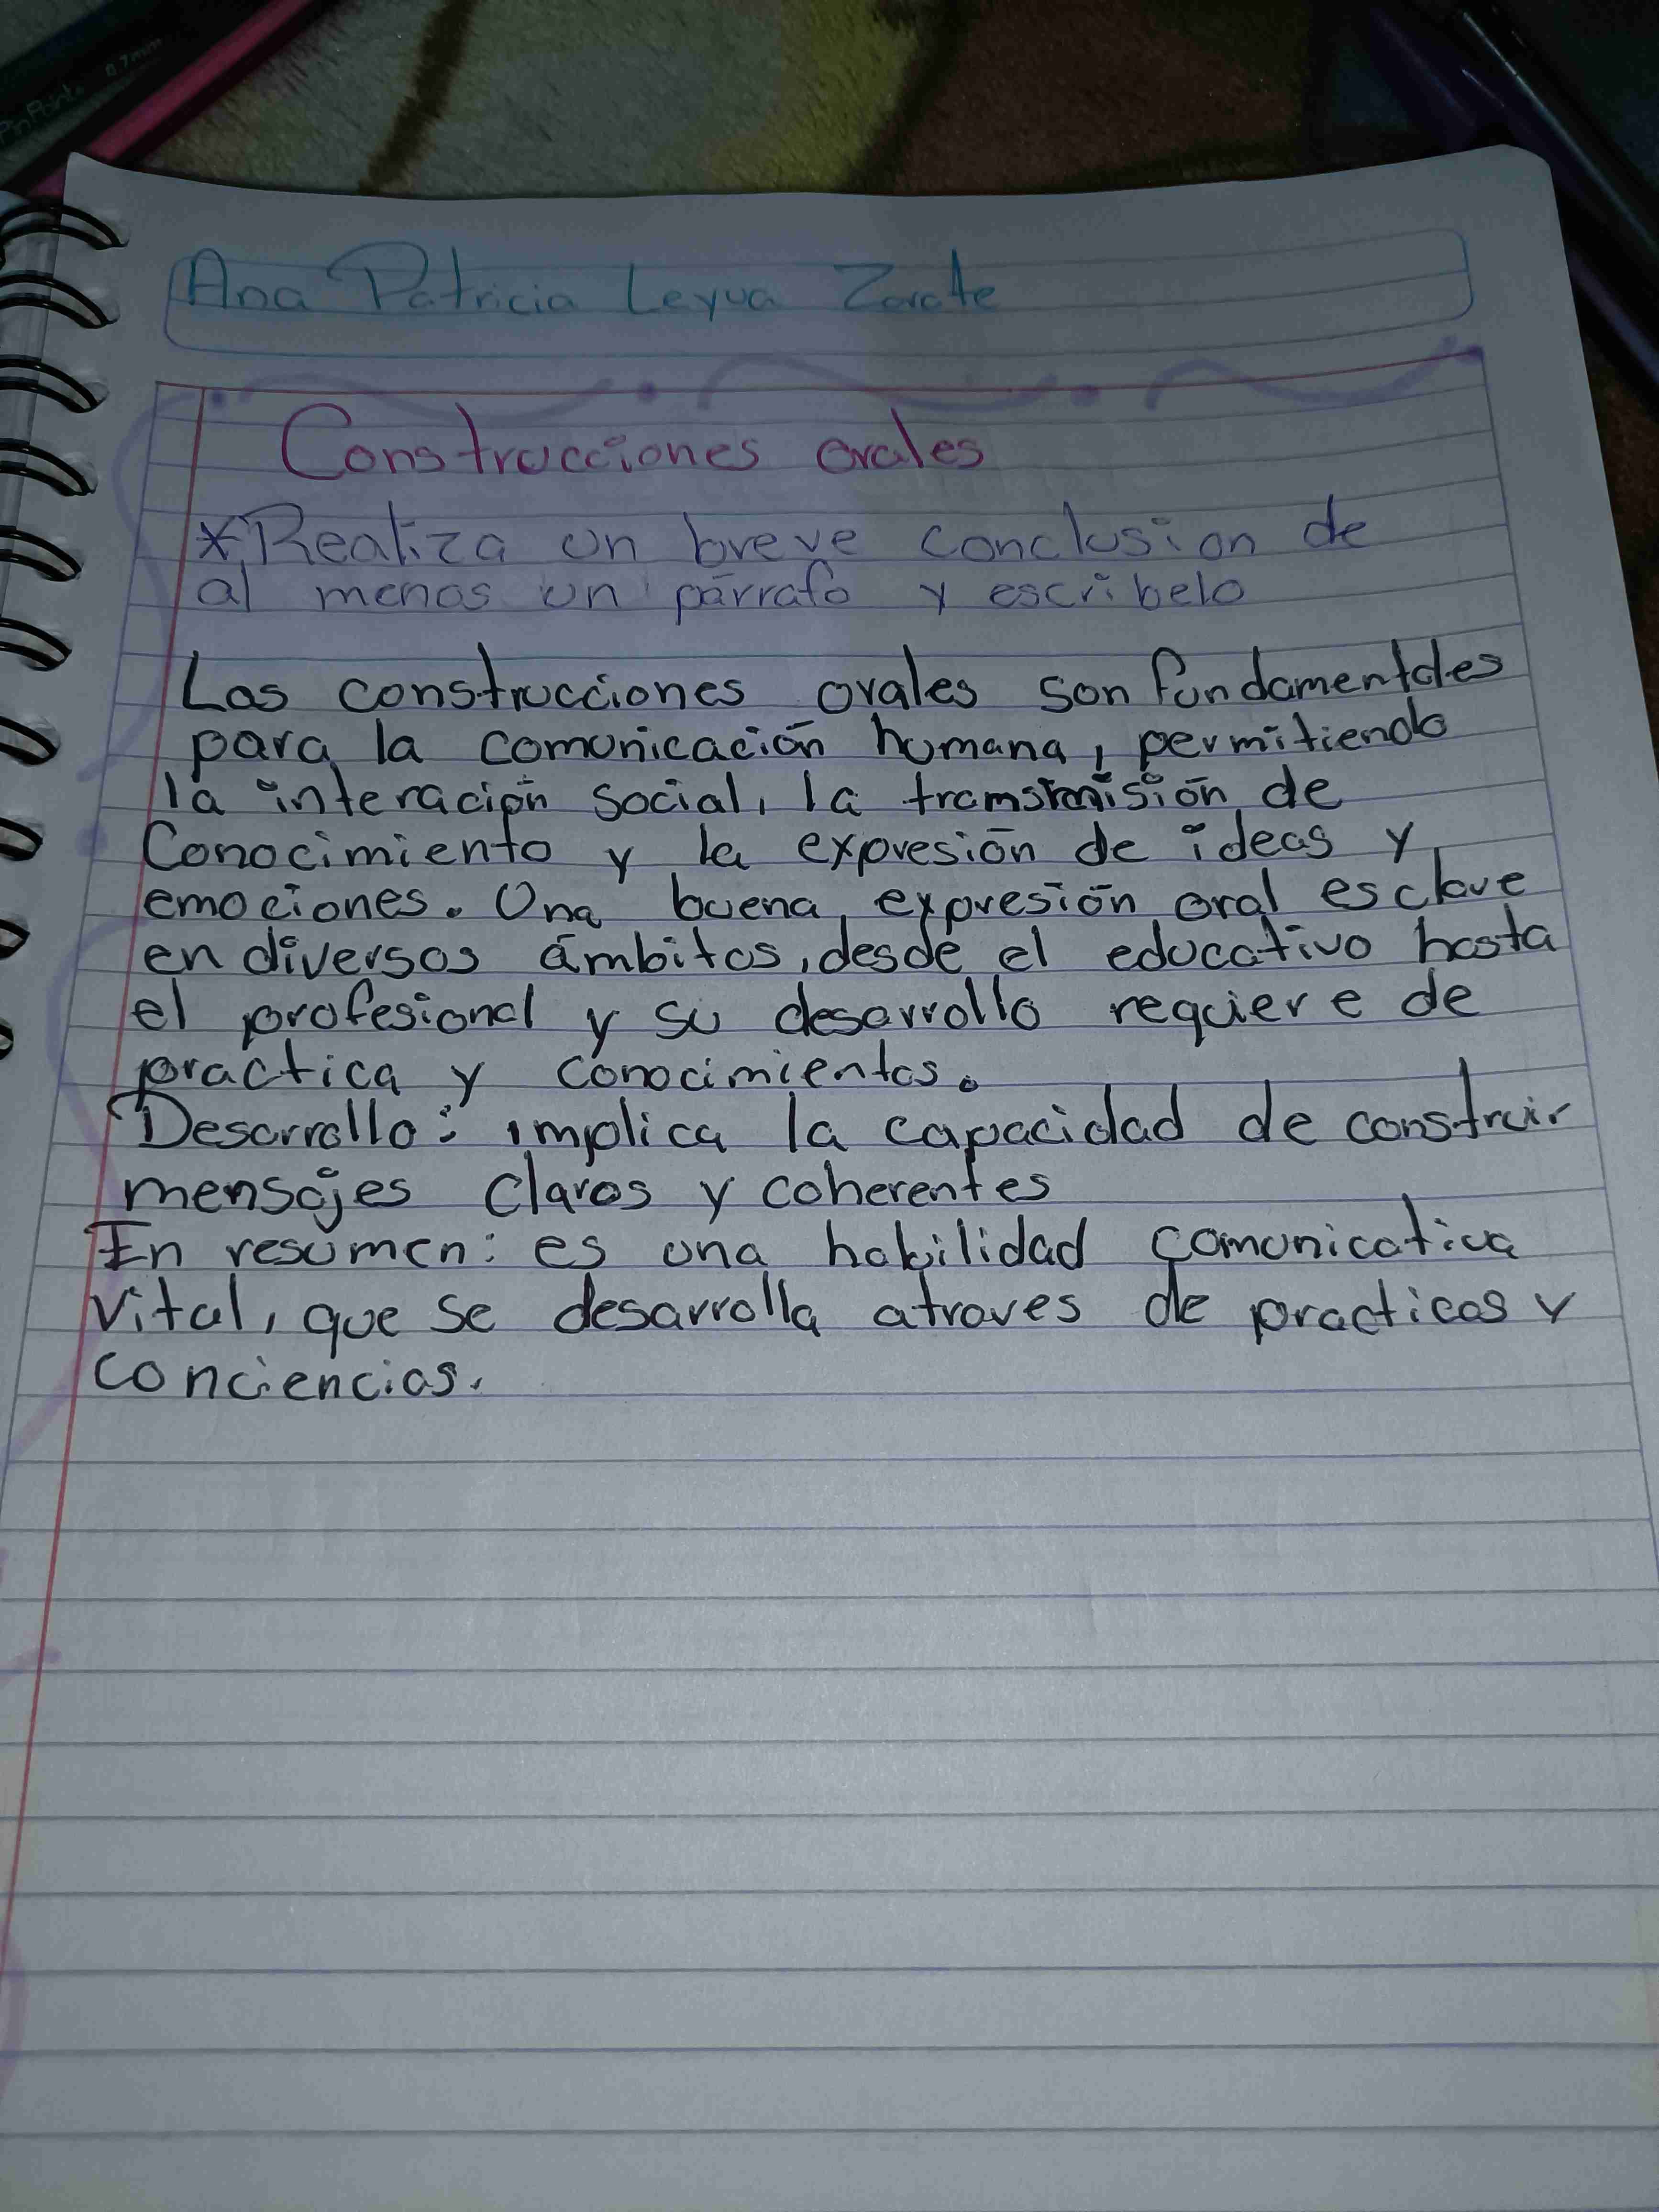 PinPoint 0.7mm
Ana Patricia Leyva Zarate
Construcciones orales
*Realiza un breve conclusion de
al menos un párrafo y escribelo
Las construcciones orales son fundamentales
para la comunicación humana, permitiendo
la interación social, la tramsmisión de
Conocimiento y la expresión de ideas y
emociones. Una buena expresión oral es clave
en diversos ámbitos, desde el educativo hasta
el profesional y su desarrollo requiere de
practica y conocimientos.
Desarrollo: implica la capacidad de construir
mensajes claros y coherentes
En resumen: es una habilidad comunicativa
vital, que se desarrolla atraves de practicas y
conciencias.